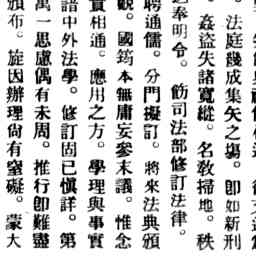 法庭幾成集矢之場。卽如新刑
姦盜失諸寬縱。名敎掃地。秩
奉明令。飭司法部修訂法律。
聘通儒。分門擬訂。將來法典頒
觀。國筠本無庸妄參末議。惟念
實相通。應用之方。學理與事實
諳中外法學。修訂固已愼詳。第
萬一思慮偶有未周。推行卽難盡
頒布。旋因辦理尙有窒礙。蒙大